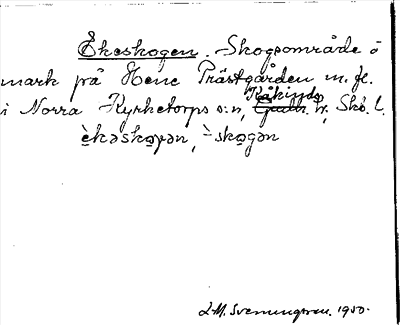 Ekeskogen. Skogsområde å
mark på Hene Prästgården m.fl.
i Norra Kyrketorps s:n, Kåkinds h., Skb. l.
èkəskoɣən, -̀skogən
L.M. Svenungsson. 1950.